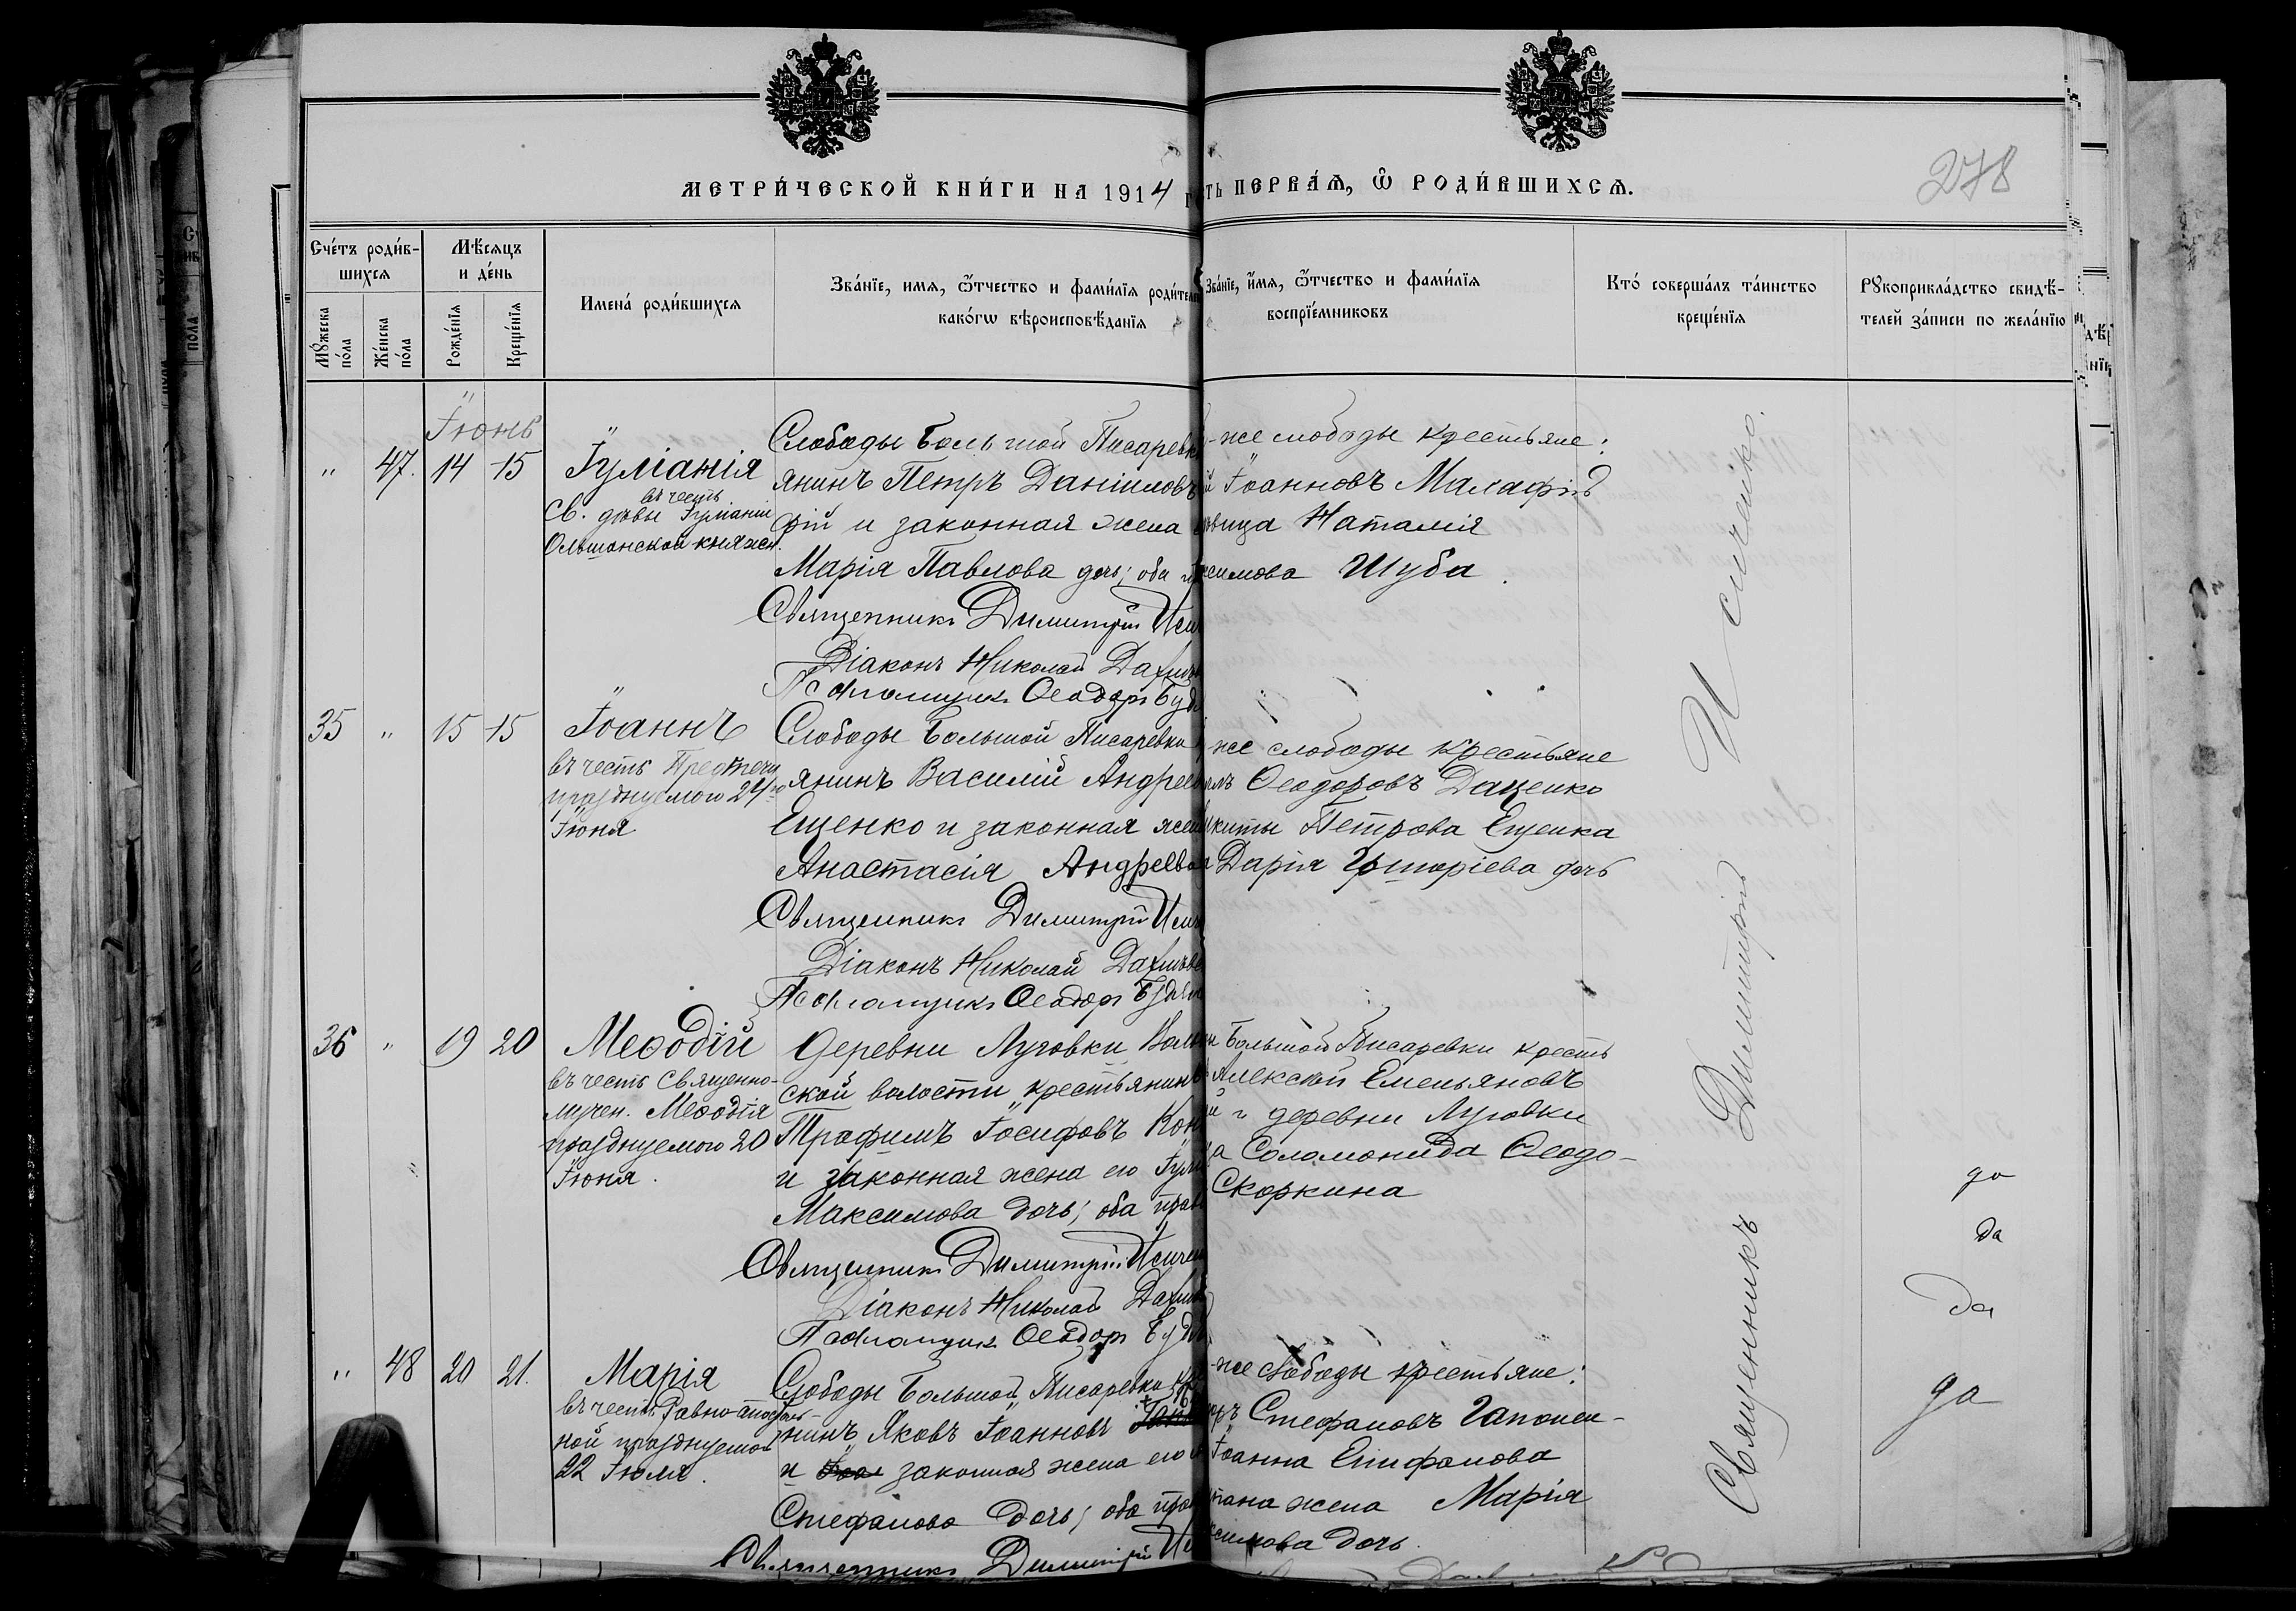 МЕТРИ́ЧЕСКОЙ КНИ́ГИ НА 1914
ть ПЕРВА́Ѧ, Ѡ҆ РОДИ́ВШИХСѦ.
278
Сче́тъ роди́в-
шихсѧ
Мѣ́сѧцъ
и де́нь
Имена́ роди́вшихсѧ
Зва́нїе, имѧ, ѻ҆́тчество и фами́лїѧ роди́теле
како́гѡ вѣроисповѣ́данїѧ
Зва́нїе, и҆́мѧ, ѻ҆́тчество и фами́лїѧ
воспрїе́мниковъ
Кто́ соверша́лъ та́инство
креще́нїѧ
Рꙋкоприкла́дство свидѣ́-
телей за́писи по жела́нїю
Мꙋ́жеска
по́ла
Же́нска
по́ла
Рожде́нїѧ
Креще́нїѧ
Іюнь
" 47. 14 15
Іуліанія
въ честь
Св. дѣвы Іуліаніи
Ольшанской княжн.
Слободы Большой Писаревк
янинъ Петръ Даниловъ
фій и законная жена
Марія Павлова дочь; оба
Священникъ Димитрій Иси
Діаконъ Николай
Псаломщикъ Ѳеодоръ Буд
-же слободы крестьяне:
й Іоанновъ Малафій
вица Наталія
симова Шуба.
35 " 15 15
Іоаннъ
въ честь Предтечи
празднуемого 24го
Іюня
Слободы Большой Писаревки
янинъ Василій Андреев
Ещенко и законная жен
Анастасія Андреева
Священникъ Димитрій Иси
Діаконъ Николай
Псаломщикъ Ѳеодоръ Буд
же слободы крестьяне
Ѳеодоровъ Даценко
киты Петрова Ещенка
Дарія Григоріева дочь
36 " 19 20
Меѳодій
въ честь Священно-
мучен. Меѳодія
празднуемого 20
Іюня.
Деревни Луговки
ской волости крестьянинъ
Трофимъ Іосифовъ Кон
и законная жена его Іул
Максимова дочь; оба прав
Священникъ Димитрій Исичен
Діаконъ Николай
Псаломщикъ Ѳеодоръ Буд
Большой Писаревки кресть
Алексѣй Емельяновъ
й и деревни Луговки
а Соломонида Ѳеодо-
Скоркина
" 48 20 21.
Марія
въ честь Равно-апостоль-
ной празднуемой
22 Іюля.
Слободы Большой Писаревки кр
нинъ Яковъ Іоанновъ
и законная жена его
Стефанова дочь; оба прав
Священникъ Димитрій Ис
-же слободы крестьяне:
ръ Стефановъ Гапонен-
Іоанна Епифанова
пана жена Марія
ксимова дочь.
Священникъ Димитрій Исиченко.
да
да
да
да